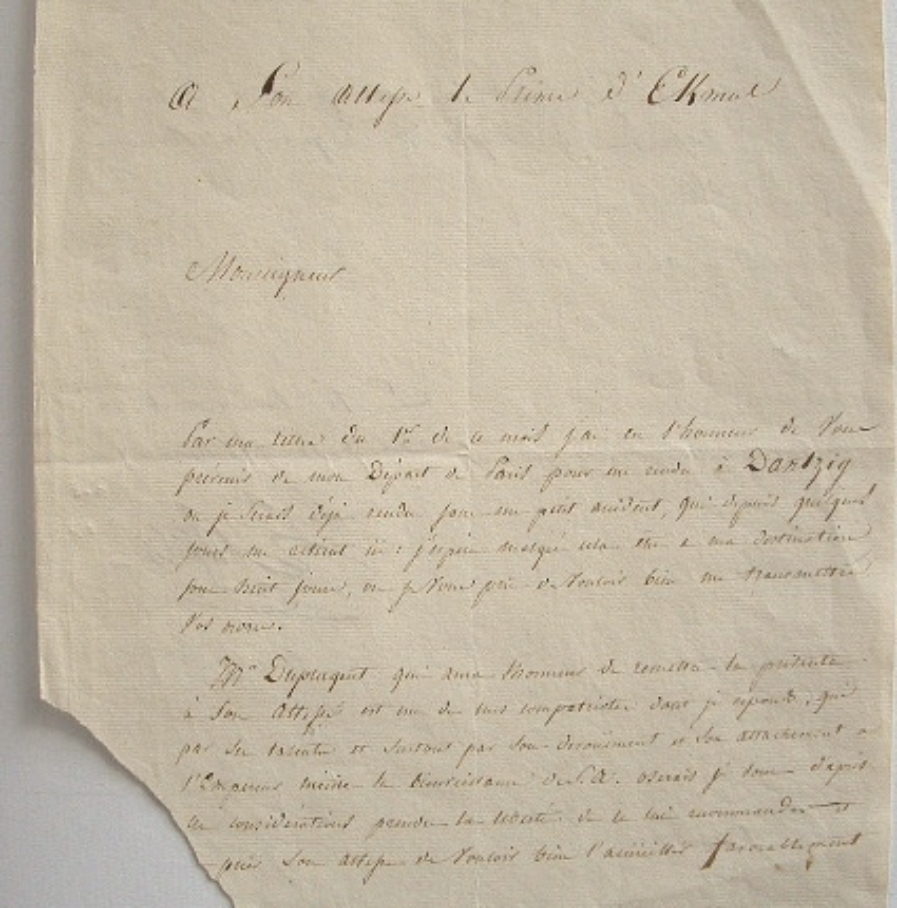 A Son Altesse le Prince d'Ekmul
Monseigneur
Par ma lettre du 1er de ce mois j'ai eu l'honneur de Vous
prévenir de mon Départ de Paris pour me rendre à Dantzig
ou je serais déjà rendu sans un petit accident, qui depuis quelques
jours me retient ici : j'espère malgré cela être a ma destination
sous huit jours, ou je Vous prie de Vouloir bien me transmettre
Vos
Mr qui aura l'honneur de remettre la présente
à Son Altesse est un de mes compatriotes dont je réponds, qui
par ses talents et surtout par son dévouement et son attachement a
l'Empereur mérite la bienveillance de S. A. oserais je donc d'après
ces considérations prendre la liberté de le lui recommander et
prier Son Altesse de Vouloir bien l'accueillir favorablement